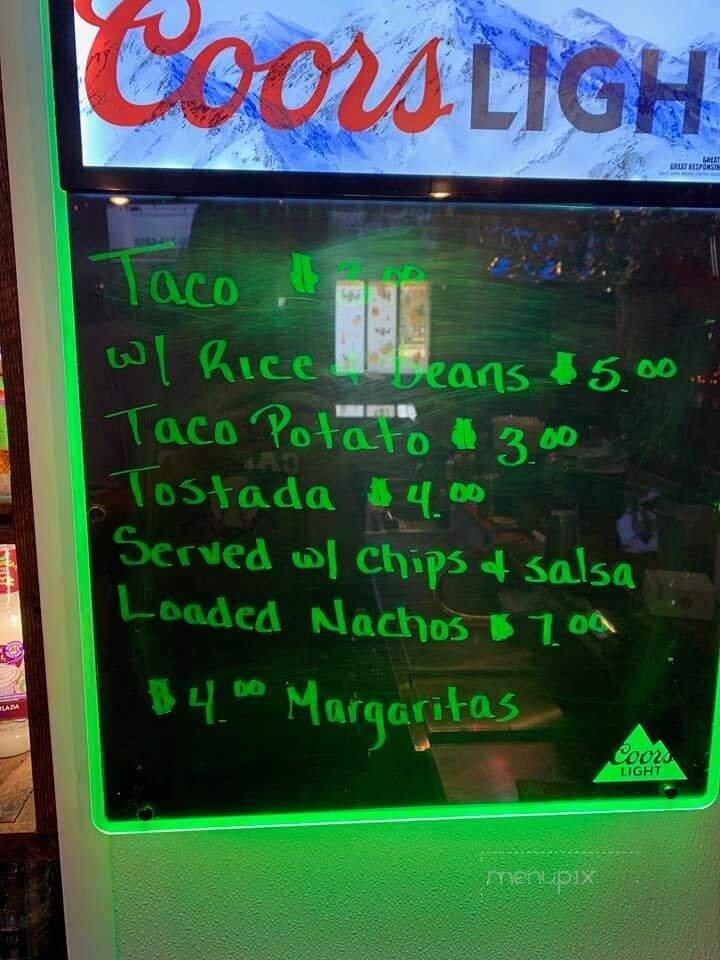 Coors LIGH
GREAT
GREAT RESPONSIB
Taco $ 3.00
w/ Rice & Beans $ 5.00
Taco Potato $ 3.00
Tostada $ 4.00
Served w/ chips & salsa
Loaded Nachos $ 7.00
$ 4.00 Margaritas
Coors
LIGHT
LADA
menupix